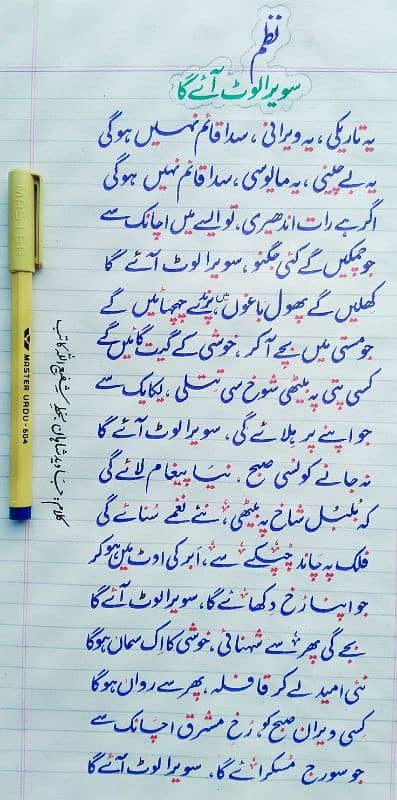 نظم
سویرا لوٹ آئے گا
یہ تاریکی ، یہ ویرانی ، سدا قائم نہیں ہوگی
یہ بے چینی ، یہ مایوسی ، سدا قائم نہیں ہوگی
اگر ہے رات اندھیری ، تو ایسے میں اچانک سے
جو چمکیں گے کئی جگنو ، سویرا لوٹ آئے گا
کھلیں گے پھول باغوں میں ، پرندے چہچہائیں گے
جو مستی میں بچے آ کر ، خوشی کے گیت گائیں گے
کسی پتی پہ بیٹھی شوخ سی تتلی ، یکایک سے
جو اپنے پر ہلائے گی ، سویرا لوٹ آئے گا
نہ جانے کونسی صبح ، نیا پیغام لائے گی
کہ بُلبُل شاخ پہ بیٹھی ، نئے نغمے سُنائے گی
فلک پہ چاند چُپکے سے ، اَبر کی اوٹ میں ہو کر
جو اپنا رُخ دکھائے گا ، سویرا لوٹ آئے گا
بجے گی پھر سے شہنائی ، خوشی کا اِک سماں ہوگا
نئی امید لے کر قافلہ ، پھر سے رواں ہوگا
کِسی ویران صبح کو ، رُخِ مشرق اچانک سے
جو سورج مُسکرائے گا ، سویرا لوٹ آئے گا
MASTER
MASTER URDU - 604